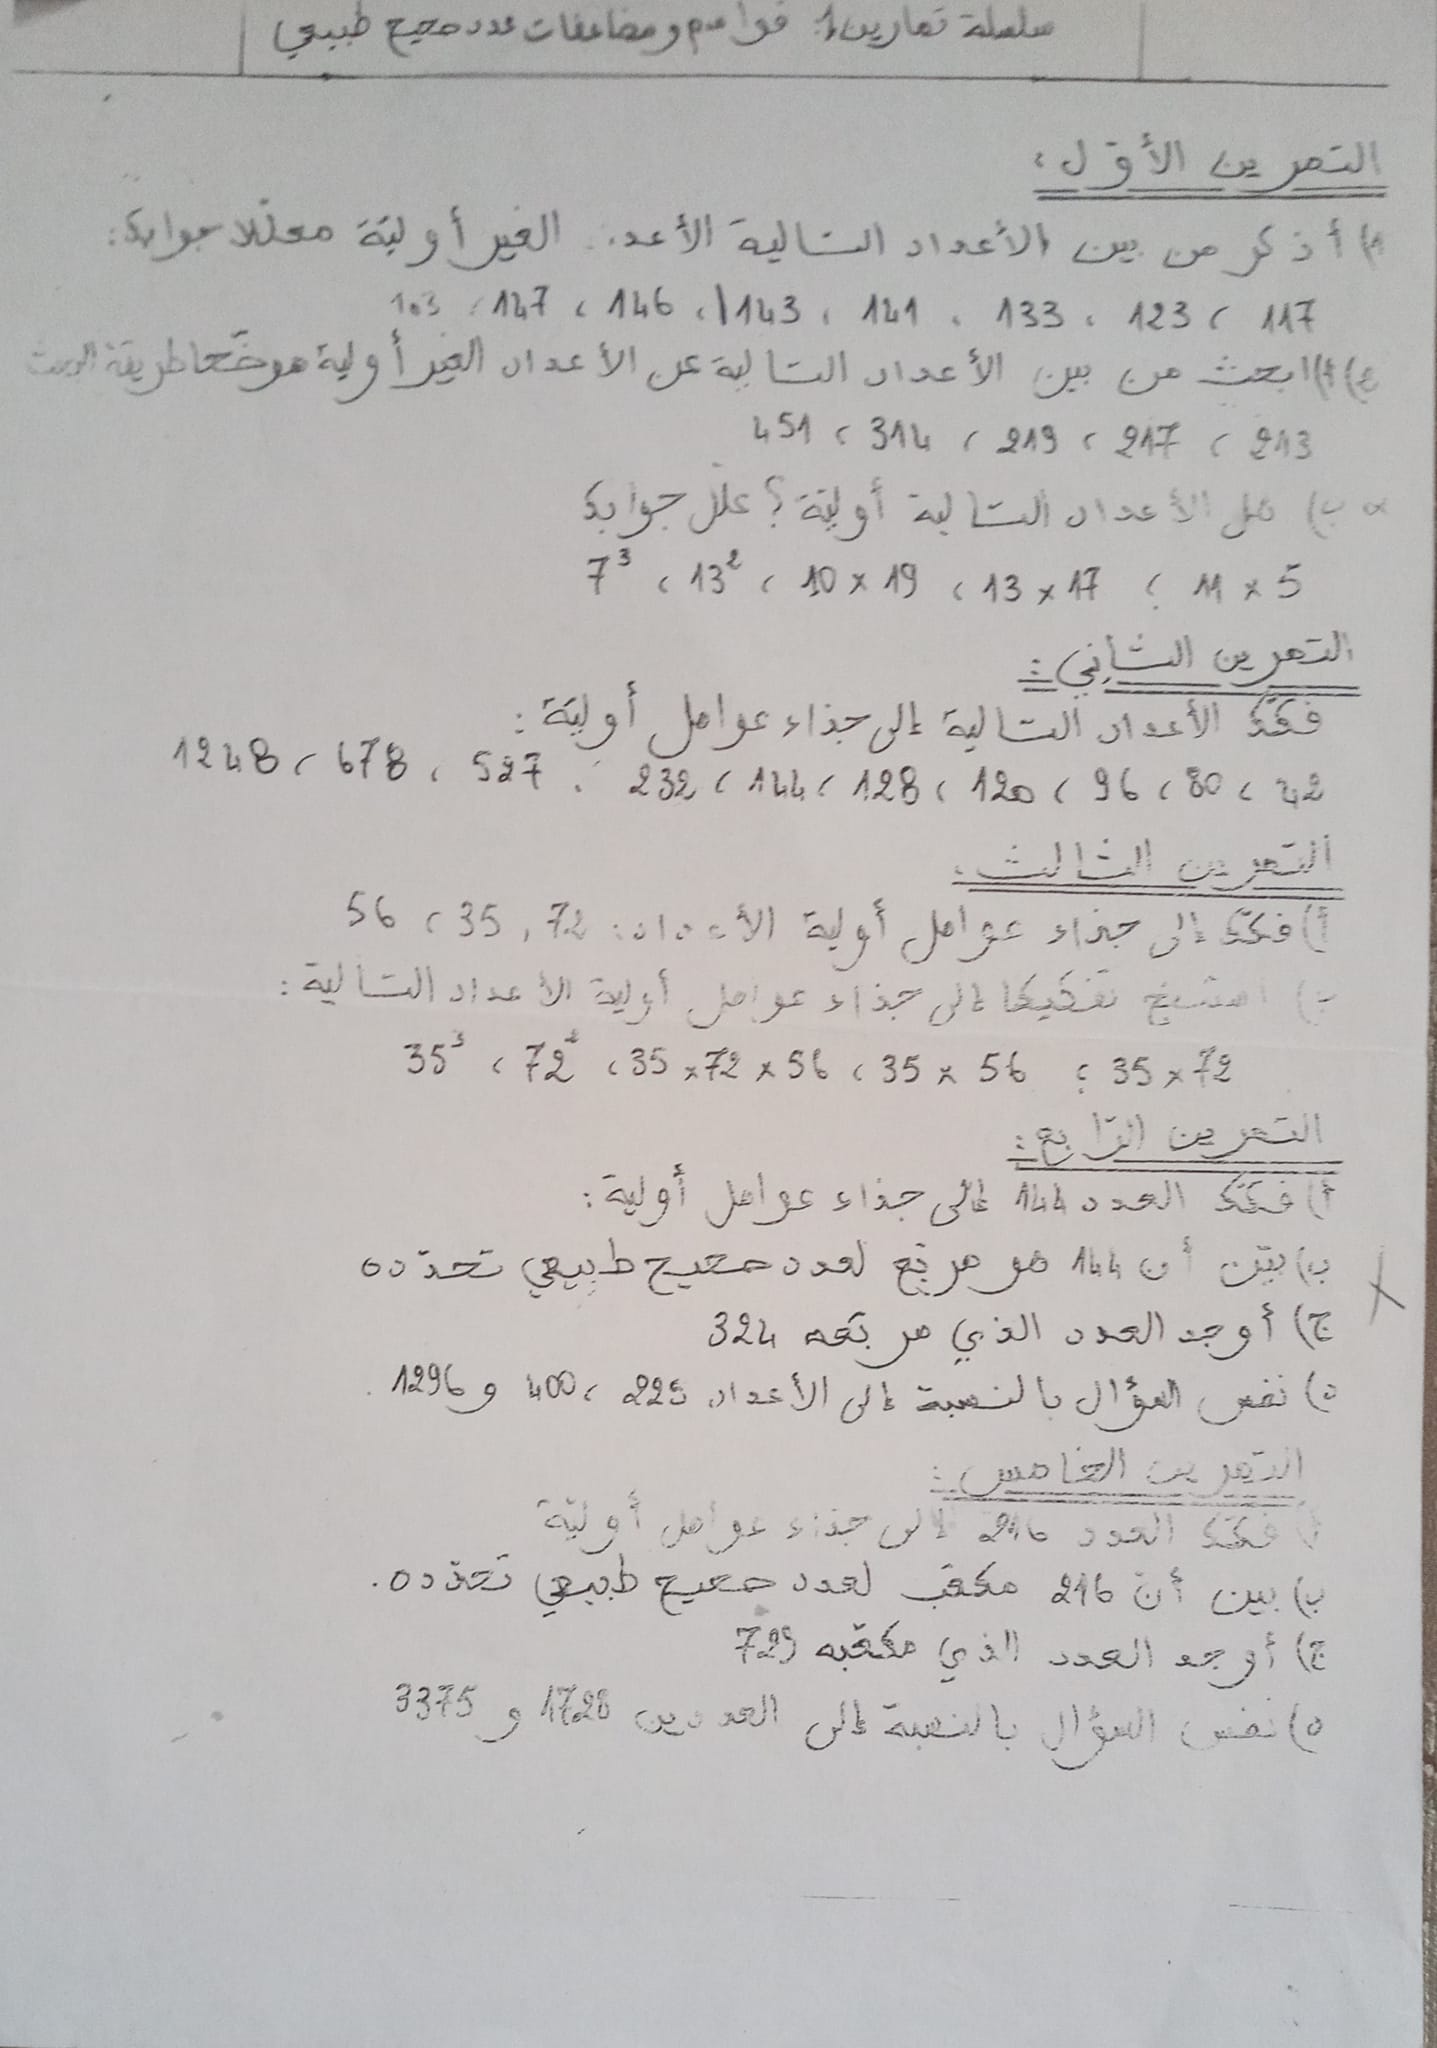 سلسلة تمارين 1: قواسم ومضاعفات عدد صحيح طبيعي
التمرين الأوّل:
1) أذكر من بين الأعداد التالية الأعد الغير أوليّة معلّلا جوابك:
117 ، 123 ، 133 ، 141 ، 143 ، 146 ، 147 ، 103
2) أ) ابحث من بين الأعداد التالية عن الأعداد الغير أولية موضّحا طريقة البحث
213 ، 217 ، 219 ، 314 ، 451
ب) هل الأعداد التالية أوليّة؟ علّل جوابك
11 × 5 ؛ 13 × 17 ، 10 × 19 ، 13² ، 7³
التمرين الثاني:
فكّك الأعداد التالية إلى جذاء عوامل أوليّة:
42 ، 80 ، 96 ، 120 ، 128 ، 144 ، 232 ، 527 ، 678 ، 1248
التمرين الثالث:
أ) فكّك إلى جذاء عوامل أولية الأعداد: 72 ، 35 ، 56
ب) استنتج تفكيكا إلى جذاء عوامل أولية الأعداد التالية:
35 × 72 ؛ 35 × 56 ، 35 × 72 × 56 ، 72² ، 35³
التمرين الرّابع:
أ) فكّك العدد 144 إلى جذاء عوامل أولية:
ب) بيّن أن 144 هو مربّع لعدد صحيح طبيعي تحدّده
ج) أوجد العدد الذي مربّعه 324
د) نفس السؤال بالنسبة إلى الأعداد 225 ، 400 و 1296.
التمرين الخامس:
أ) فكّك العدد 216 إلى جذاء عوامل أوليّة
ب) بين أنّ 216 مكعّب لعدد صحيح طبيعي تحدّده.
ج) أوجد العدد الذي مكعّبه 729
د) نفس السؤال بالنسبة إلى العددين 1728 و 3375